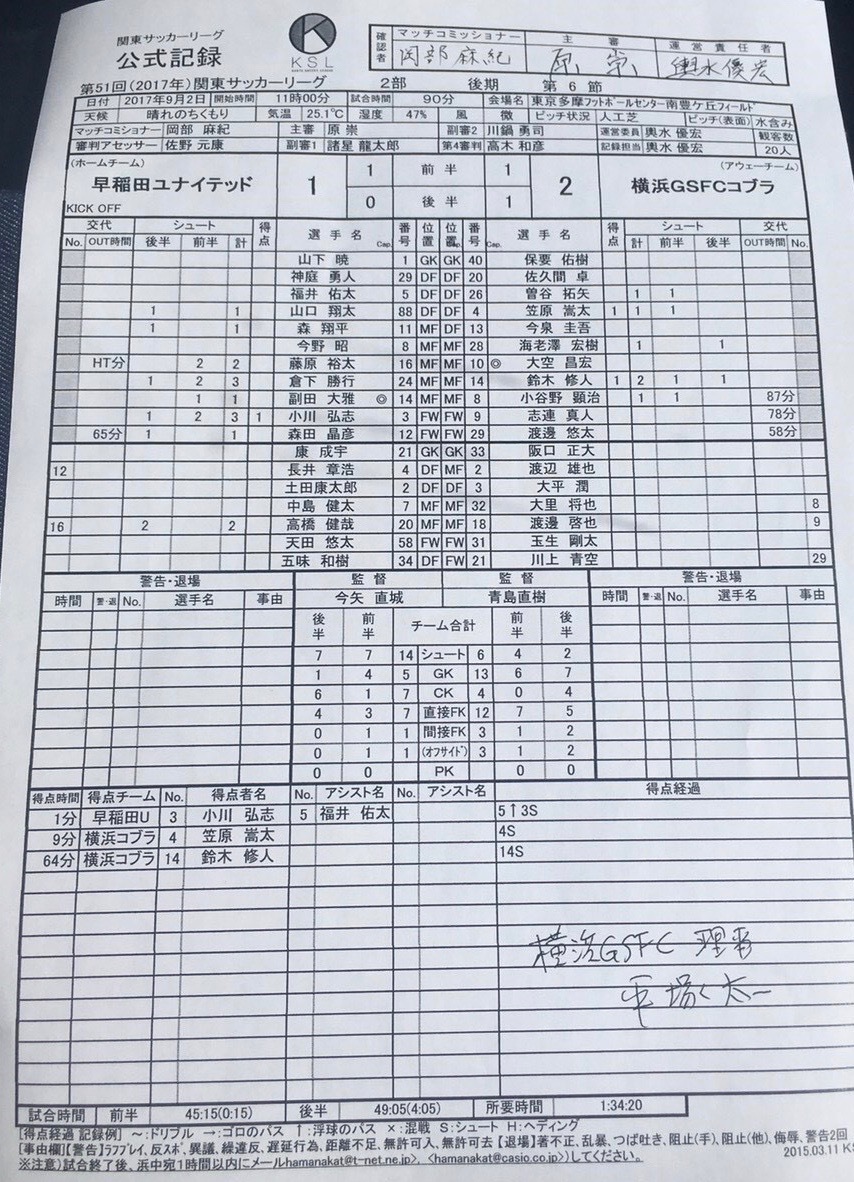 関東サッカーリーグ
公式記録
KSL
確認者 マッチコミッショナー 主審 運営責任者
岡部麻紀 原崇 輿水優宏
第51回(2017年)関東サッカーリーグ 2部 後期 第6節
日付 2017年9月2日 開始時間 11時00分 試合時間 90分 会場名 東京多摩フットボールセンター南豊ケ丘フィールド
天候 晴れのちくもり 気温 25.1℃ 湿度 47% 風 微 ピッチ状況 人工芝 ピッチ(表面) 水含み
マッチコミショナー 岡部 麻紀 主審 原 崇 副審2 川鍋 勇司 運営委員 輿水 優宏 観客数
審判アセッサー 佐野 元康 副審1 諸星 龍太郎 第4審判 高木 和彦 記録担当 輿水 優宏 20人
(ホームチーム) 1 前半 1 (アウェーチーム)
早稲田ユナイテッド 1 2 横浜GSFCコブラ
KICK OFF 0 後半 1
交代 シュート 得点 選手名 Cap. 番号 位置 位置 番号 Cap. 選手名 得点 シュート 交代
No. OUT時間 後半 前半 計 計 前半 後半 OUT時間 No.
山下 暁 1 GK GK 40 保要 佑樹
神庭 勇人 29 DF DF 20 佐久間 卓
福井 佑太 5 DF DF 26 曽谷 拓矢 1 1
1 1 山口 翔太 88 DF DF 4 笠原 嵩太 1 1 1
1 1 森 翔平 11 MF DF 13 今泉 圭吾
今野 昭 8 MF MF 28 海老澤 宏樹 1 1
HT分 2 2 藤原 裕太 16 MF MF 10 ◎ 大空 昌宏
1 2 3 倉下 勝行 24 MF MF 14 鈴木 修人 1 2 1 1
1 1 副田 大雅 ◎ 14 MF MF 8 小谷野 顕治 1 1 87分
1 2 3 1 小川 弘志 3 FW FW 9 志連 真人 78分
65分 1 1 森田 晶彦 12 FW FW 29 渡邊 悠太 58分
康 成宇 21 GK GK 33 阪口 正大
12 長井 章浩 4 DF MF 2 渡辺 雄也
土田康太郎 2 DF DF 3 大平 潤
中島 健太 7 MF MF 32 大里 将也 8
16 2 2 高橋 健哉 20 MF MF 18 渡邊 啓也 9
天田 悠太 58 FW FW 31 玉生 剛太
五味 和樹 34 DF FW 21 川上 青空 29
警告・退場 監督 監督 警告・退場
時間 警・退 No. 選手名 事由 今矢 直城 青島直樹 時間 警・退 No. 選手名 事由
後半 前半 チーム合計 前半 後半
7 7 14 シュート 6 4 2
1 4 5 GK 13 6 7
6 1 7 CK 4 0 4
4 3 7 直接FK 12 7 5
0 1 1 間接FK 3 1 2
0 1 1 (オフサイド) 3 1 2
0 0 0 PK 0 0
得点時間 得点チーム No. 得点者名 No. アシスト名 No. アシスト名 得点経過
1分 早稲田U 3 小川 弘志 5 福井 佑太 5↑3S
9分 横浜コブラ 4 笠原 嵩太 4S
64分 横浜コブラ 14 鈴木 修人 14S
横浜GSFC 理事
試合時間 前半 45:15(0:15) 後半 49:05(4:05) 所要時間 1:34:20
[得点経過 記録例] ～:ドリブル →:ゴロのパス ↑:浮球のパス ×:混戦 S:シュート H:ヘディング
[事由欄]【警告】ラフプレイ、反スポ、異議、繰違反、遅延行為、距離不足、無許可入、無許可去【退場】著不正、乱暴、つば吐き、阻止(手)、阻止(他)、侮辱、警告2回
※注意)試合終了後、浜中宛1時間以内にメールhamanakat@t-net.ne.jp>, <hamanakat@casio.co.jp>)してください。 2015.03.11 KS